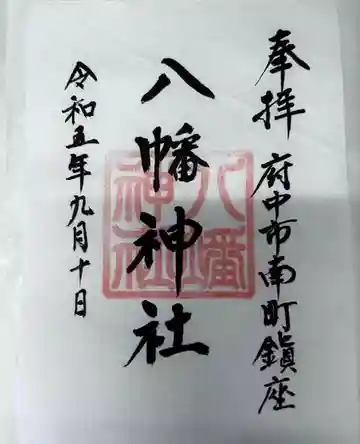 奉拝 府中市南町鎮座
八幡神社
八幡神社
令和五年九月十日